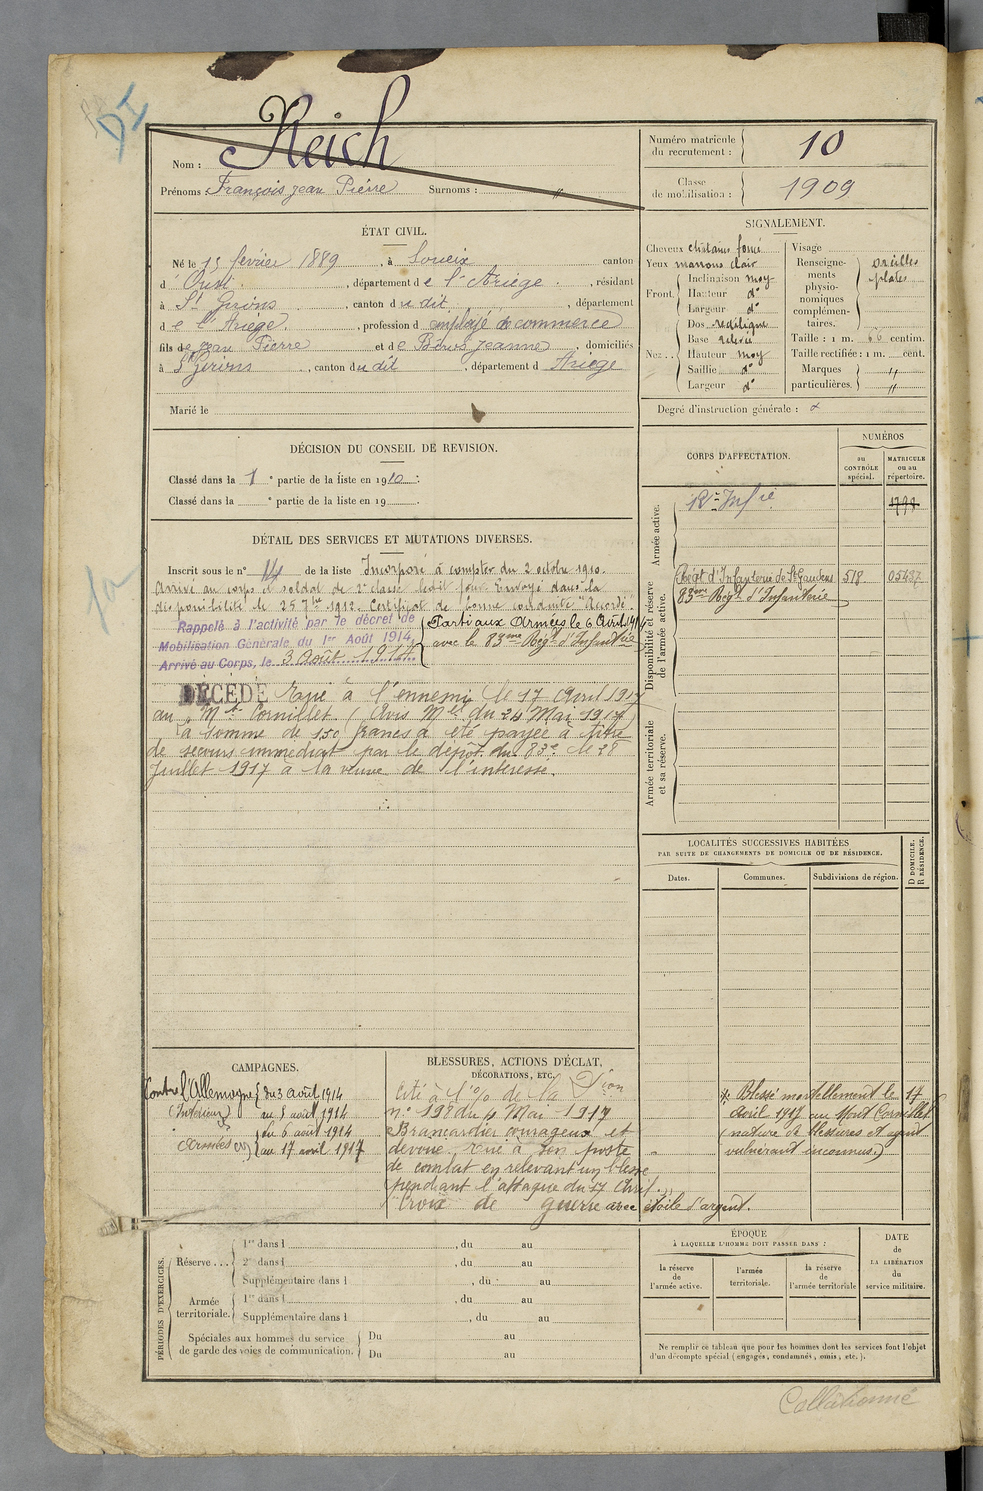 Nom : Reich
Prénoms : François Jean Pierre Surnoms : "
Numéro matricule du recrutement : 10
Classe de mobilisation : 1909
ÉTAT CIVIL.
Né le 15 février 1889, à Soueix canton
d' Oust, département de l'Ariège, résidant
à St Girons, canton du dit, département
de l'Ariège, profession d employé de commerce
fils de Jean Pierre et de Jeanne, domiciliés
à St Girons, canton du dit, département d Ariège
Marié le
SIGNALEMENT.
Cheveux châtains foncé
Yeux marrons clair
Front. Inclinaison moy
Hauteur d°
Largeur d°
Nez... Dos rectiligne
Base relevée
Hauteur moy
Saillie d°
Largeur d°
Visage
Renseignements physionomiques complémentaires. oreilles plates
Taille : 1 m. 66 centim.
Taille rectifiée : 1 m. cent.
Marques particulières. " "
Degré d'instruction générale :
DÉCISION DU CONSEIL DE REVISION.
Classé dans la 1e partie de la liste en 1910.
Classé dans la e partie de la liste en 19 .
DÉTAIL DES SERVICES ET MUTATIONS DIVERSES.
Inscrit sous le n° 14 de la liste Incorporé à compter du 2 octobre 1910.
Arrivé au corps et soldat de 2e classe ledit jour. Envoyé dans la
disponibilité le 25 7bre 1912. Certificat de bonne conduite accordé.
Rappelé à l'activité par le décret de
Mobilisation Générale du 1er Août 1914.
Arrivé au Corps, le 3 Août 1914.
Parti aux Armées le 6 Avril 1914
avec le 83me Régt d'Infanterie
DÉCÉDÉ Tué à l'ennemi le 17 Avril 1917
au Mt Cornillet (Avis Mel du 24 Mai 1917)
la somme de 150 francs a été payée à titre
de secours immédiat par le dépôt du 83e le 28
Juillet 1917 à la veuve de l'intéressé.
CORPS D'AFFECTATION.
NUMÉROS
au CONTRÔLE spécial.
MATRICULE ou au répertoire.
Armée active.
Infie
Disponibilité et réserve de l'armée active.
Régt d'Infanterie de St Gaudens 518 05437
83me Régt d'Infanterie
Armée territoriale et sa réserve.
LOCALITÉS SUCCESSIVES HABITÉES
PAR SUITE DE CHANGEMENTS DE DOMICILE OU DE RÉSIDENCE.
Dates. Communes. Subdivisions de région. D DOMICILE. R RÉSIDENCE.
CAMPAGNES.
Contre l'Allemagne du 3 août 1914
(Intérieur) au 5 août 1914
du 6 août 1914
(Armées) au 17 avril 1917
BLESSURES, ACTIONS D'ÉCLAT,
DÉCORATIONS, ETC.
Cité à l'O/ de la Dion
n° 198 du 4 Mai 1917
Brancardier courageux et
dévoué. Tué à son poste
de combat en relevant un blessé
pendant l'attaque du 17 Avril.
Croix de guerre avec étoile d'argent.
Blessé mortellement le 17
Avril 1917 au Mont Cornillet
(nature de blessures et agent
vulnérant inconnus.)
PÉRIODES D'EXERCICES.
Réserve ... 1re dans l , du au
2e dans l , du au
Supplémentaire dans l , du au
Armée territoriale. 1re dans l , du au
Supplémentaire dans l , du au
Spéciales aux hommes du service de garde des voies de communication. Du au
Du au
ÉPOQUE
À LAQUELLE L'HOMME DOIT PASSER DANS :
la réserve de l'armée active.
l'armée territoriale.
la réserve de l'armée territoriale
DATE de LA LIBÉRATION du service militaire.
Ne remplir ce tableau que pour les hommes dont les services font l'objet
d'un décompte spécial (engagés, condamnés, omis, etc.).
Collationné